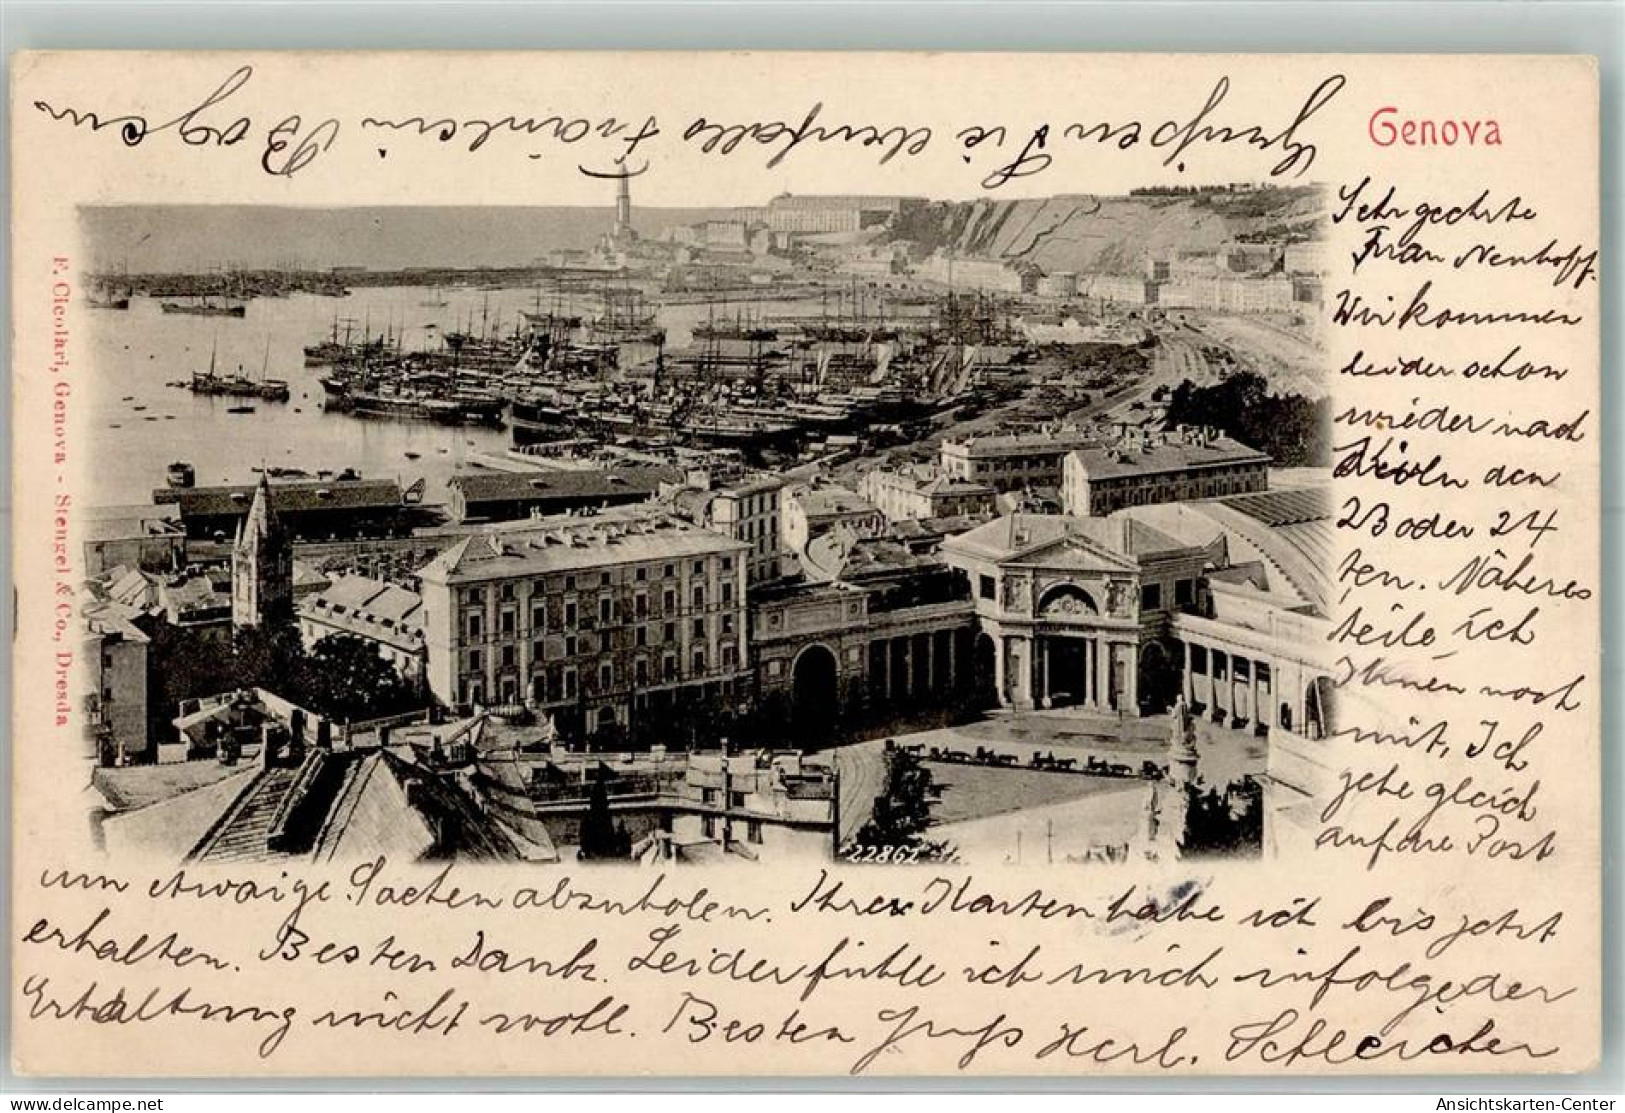 Genova
Sehr geehrte
Frau Neuhoff.
Wir kommen
leider schon
wieder nach
Köln den
23 oder 24
ten. Näheres
teile ich
Ihnen noch
mit, Ich
gehe gleich
auf die Post
um etwaige Sachen abzuholen. Ihre Karten habe ich bis jetzt
erhalten. Besten Dank. Leider fühle ich mich infolge der
Erkältung nicht wohl. Besten Gruß Herl. Schleicher
Grüßen Sie ebenfalls Fräulein Bogen
F. Cicolari, Genova - Stengel & Co., Dresda
22861
delcampe.net
Ansichtskarten-Center